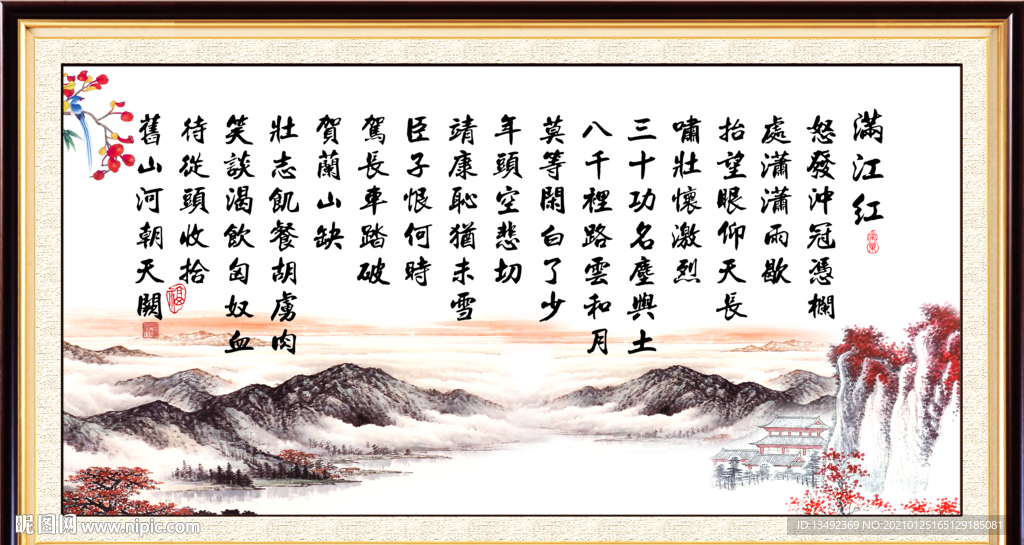 滿江紅
怒發沖冠憑欄
處瀟瀟雨歇
抬望眼仰天長
嘯壯懷激烈
三十功名塵與土
八千裡路雲和月
莫等閑白了少
年頭空悲切
靖康恥猶未雪
臣子恨何時
駕長車踏破
賀蘭山缺
壯志飢餐胡虜肉
笑談渴飲匈奴血
待從頭收拾
舊山河朝天闕
昵图网 www.nipic.com
ID:13492369 NO:20210125165129185081